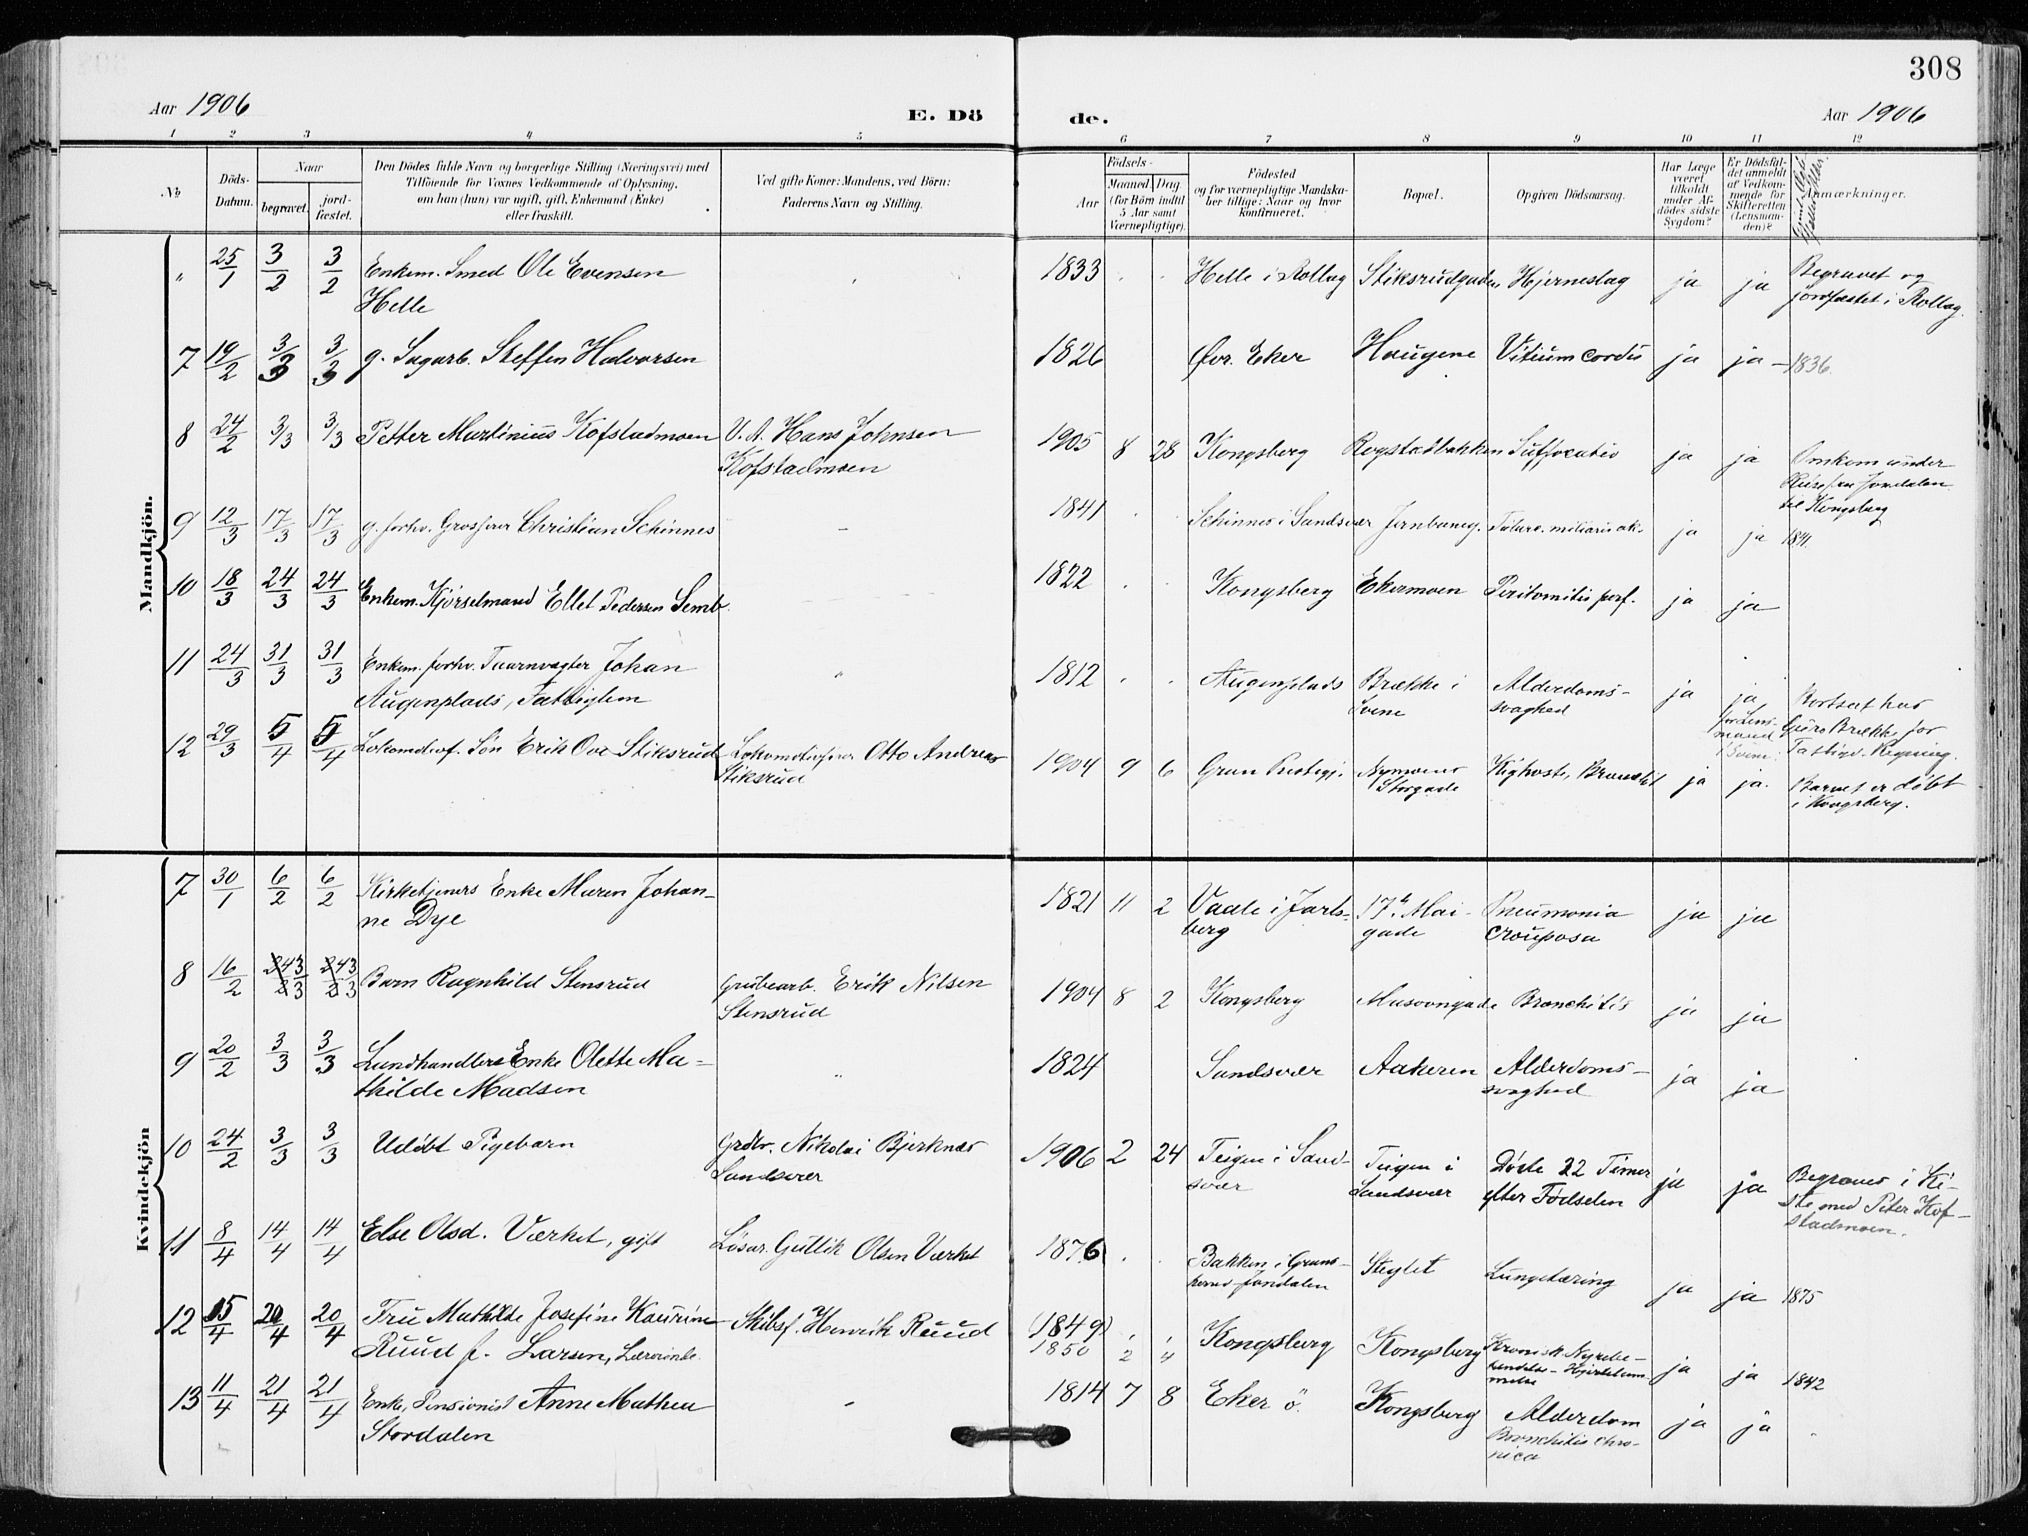 308
Aar 1906
E. Dö
de.
Aar 1906
1 2 3 4 5 6 7 8 9 10 11 12
No
Döds-
Datum.
Naar
begravet.
jord-
fæstet.
Den Dödes fulde Navn og borgerlige Stilling (Næringsvei) med
Tilföiende for Voxnes Vedkommende af Oplysning,
om han (hun) var ugift, gift, Enkemand (Enke)
eller fraskilt.
Ved gifte Koner: Mandens, ved Börn:
Faderens Navn og Stilling.
Födsels-
Aar
Maaned.
Dag.
(for Börn indtil
5 Aar samt
Værnepligtige).
Födested
og for værnepligtige Mandska-
ber tillige: Naar og hvor
Konfirmeret.
Bopæl.
Opgiven Dödsaarsag.
Har Læge
været
tilkaldt
under Af-
dödes sidste
Sygdom?
Er Dödsfal-
det anmeldt
af Vedkom-
mende for
Skifteretten
(Lensman-
den)?
Anmærkninger.
Mandkjön.
" 25/1 3/2 3/2 Enkem. Smed Ole Evensen
Helle
1833 Helle i Rollag Stiksrudgaden Hjerneslag ja ja Begravet og
jordfæstet i Rollag.
7 19/2 3/3 3/3 g. Sagarb. Steffen Halvorsen
1826 Øvr. Eker Haugene Vitium cordis ja ja 1836.
8 24/2 3/3 3/3 Petter Martinius Kofstadmoen U. A. Hans Johnsen
Kofstadmoen
1905 8 28 Kongsberg Rogstadbakken Suffocatio ja ja Omkom under
Reise fra Jondalen
til Kongsberg
9 12/3 17/3 17/3 g. forhv. Grosserer Christian Schinnes
1841 Schinnes i Sandsvær Jernbaneg. miliaris ak. ja ja 1841.
10 18/3 24/3 24/3 Enkem. Kjørselmand Ellef Pedersen Semb.
1822 Kongsberg Ekermoen Peritonitis perf. ja ja
11 24/3 31/3 31/3 Enkem. forhv. Taarnvægter Johan
Augenplads, Fattiglem
1812 Augenplads Brække i
Svene
Alderdoms-
svaghed
ja ja
for Lens-
mand
i Svene.
Bortsat hos
Brække for
Regning.
12 29/3 5/4 5/4 Lokomotivf. Søn Erik Ove Stiksrud Lokomotivfører Otto Andreas
Stiksrud
1904 9 6 Gran Præstegj. Nymoens
Storgade
Kighoste, Bronchit ja ja. Barnet er døbt
i Kongsberg.
Kvindekjön
7 30/1 6/2 6/2 Kirketjeners Enke Maren Johan-
ne Dye
1821 11 2 Vaale i Jarls-
berg
17de Mai-
gade
Pneumonia
crouposa
ja ja
8 16/2 3/3 3/3 Barn Ragnhild Stensrud Grubearb. Erik Nilsen
Stensrud
1904 8 2 Kongsberg Bronchitis ja ja
9 20/2 3/3 3/3 Landhandlers Enke Olette Ma-
thilde Madsen
1824 Sandsvær Aakeren Alderdoms-
svaghed
ja ja
10 24/2 3/3 3/3 Udöbt Pigebarn Grdbr. Nikolai Bjerknæs
Sandsvær
1906 2 24 Teigen i Sand-
svær
Teigen i
Sandsvær
Døde 22 Timer
efter Fødselen
ja ja Begraves i Ki-
ste med Peter Kof-
stadmoen.
11 8/4 14/4 14/4 Else Olsd. Værket, gift Løsar. Gullik Olsen Værket
1876 Bakken i
Jondalen
Steglet Lungetæring ja ja 1875
12 15/4 20/4 20/4 Fru Mathilde Josefine Kaurine
Ruud f. Larsen, Lærerinde.
Skibsf. Henrik Ruud
(1849)
1850 2 4 Kongsberg Kongsberg Kronisk Nyrebe-
tændelse - Hjertelam-
melse
ja ja 1842
13 11/4 21/4 21/4 Enke, Pensionist Anne Mathea
Stordalen
1814 7 8 Eker ö. Kongsberg Alderdom
Bronchitis chro-
nica
ja ja